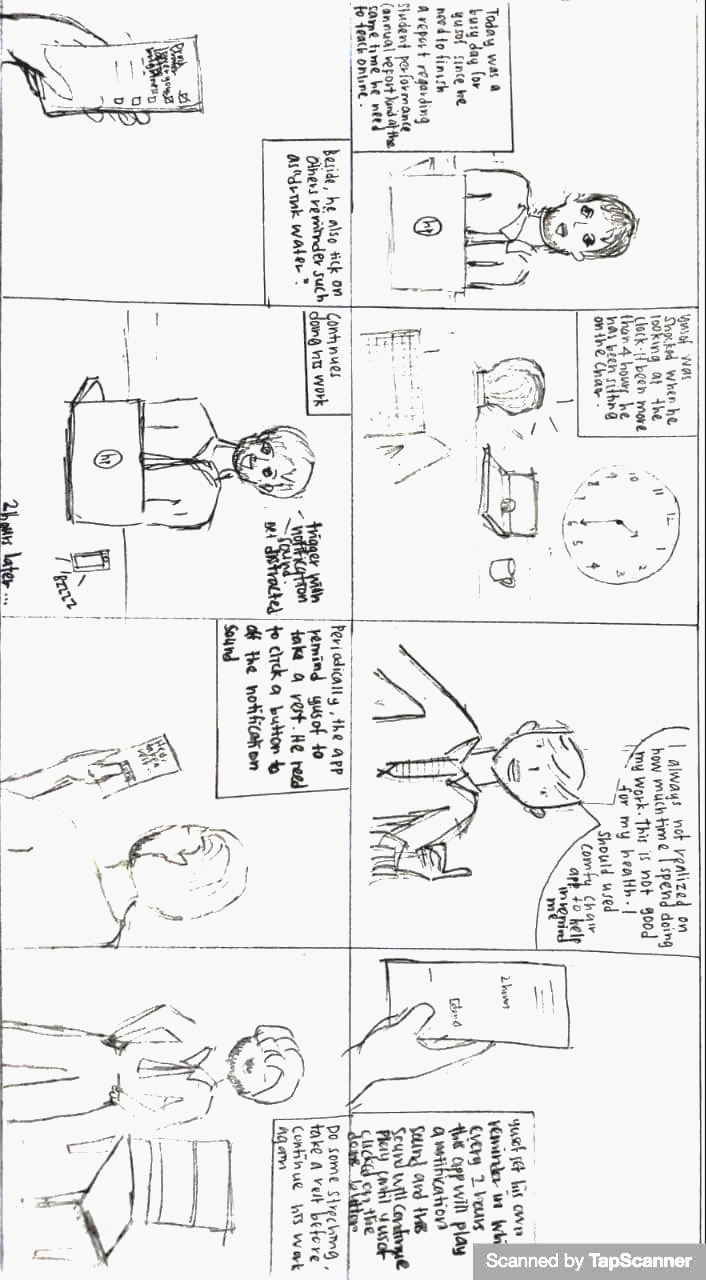 Today was a
busy day for
yusof since he
need to finish
a report regarding
student performance
(annual report) and at the
same time he need
to teach online.
hp
yusof was
shocked when he
looking at the
clock. it been more
than 4 hours he
has been sitting
on the chair.
12
1
2
3
4
5
6
8
9
10
11
I always not realized on
how much time I spend doing
my work. This is not good
for my health. I
should used
comfy chair
app to help
in remind
me
2 hours
yusof set his own
reminder in whi
every 2 hours
this app will play
a notification
sound and this
sound will continue
play until yusof
clicked on the
done button
Beside, he also tick on
others reminder such
as "drink water"
Continues
doing his work
hp
trigger with
notification
sound.
get distracted
BZZZZ
2 hours later...
Periodically, the app
remind yusof to
take a rest. He need
to click a button to
off the notification
sound
Do some streching,
take a rest before
continue his work
again
Scanned by TapScanner